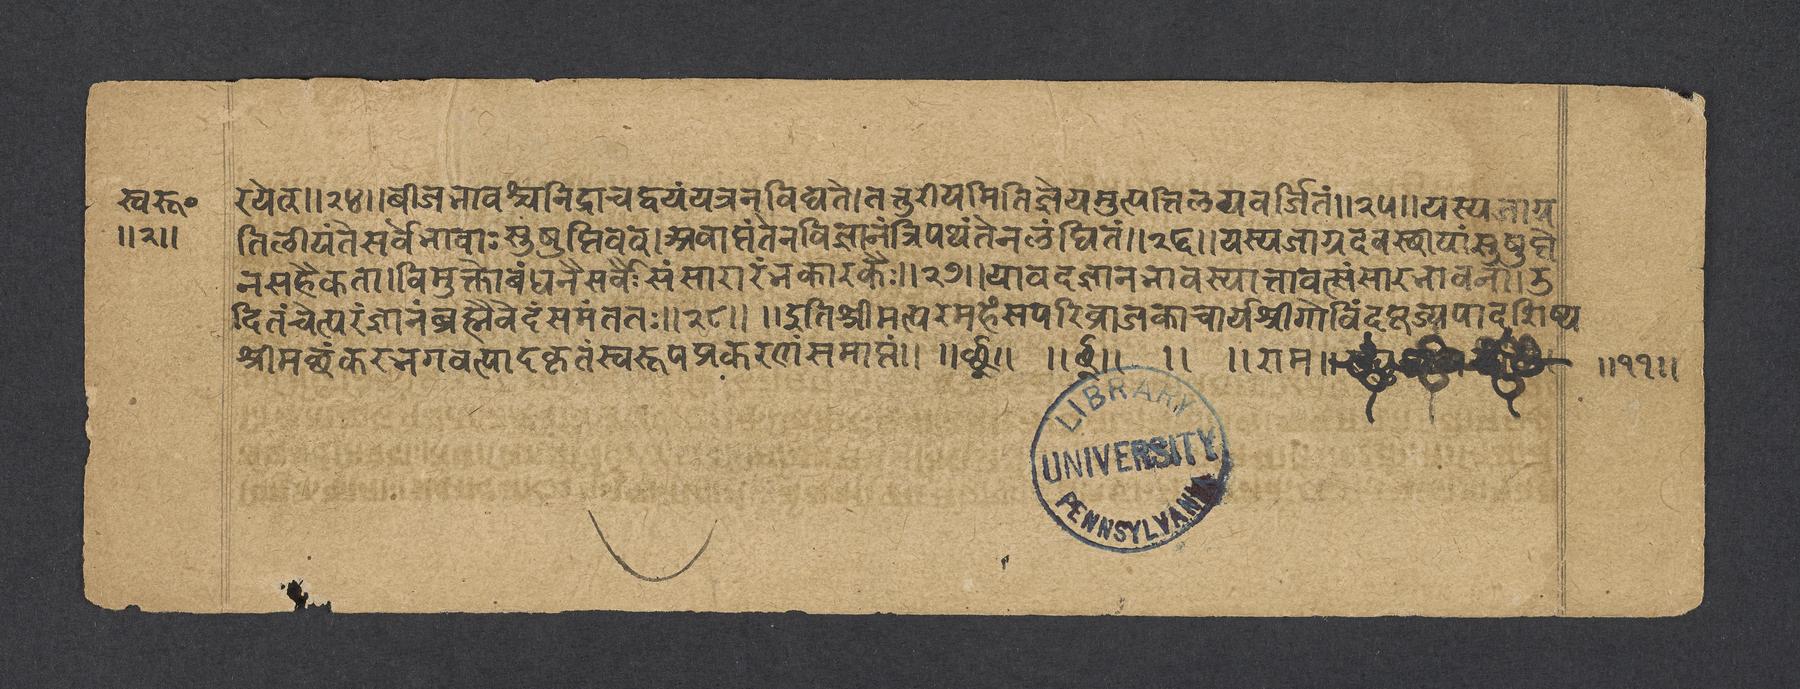 स्वरू० रयेत्॥२४॥बीजभावश्चनिद्राचद्वयंयत्रनविद्यते।तत्तुरीयमितिज्ञेयमुत्पत्तिलयवर्जितं॥२५॥यस्यजाग्र
॥२॥ तिलीयंतेसर्वेभावाःसुषुप्तिवत्।अवाप्तंतेनविज्ञानंत्रिपथंतेनलंघितं॥२६॥यस्यजाग्रदवस्थायांसुषुप्ते
नसहैकता।विमुक्तोबंधनैसर्वैःसंसारारंभकारकैः॥२७॥यावदज्ञानभावस्यात्तावत्संसारभावना।उ
दितंचेत्परंज्ञानंब्रह्मैवेदंसमंततः॥२८॥ ॥इतिश्रीमत्परमहंसपरिव्राजकाचार्यश्रीगोविंदपूज्यपादशिष्य
श्रीमछंकरभगवत्पादकृतंस्वरूपप्रकरणंसमाप्तं॥ ॥छ॥ ॥ ॥राम॥ ॥११॥
LIBRARY
UNIVERSITY
PENNSYLVANIA